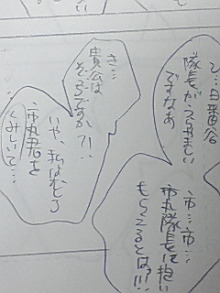 隊長がうらやましい
ですなあ
市…市…
市丸隊長に抱い
もらえるとは!!!
さ…
貴公は
そっちですか?!
いや、私はむしろ
市丸君を
くみしいて…